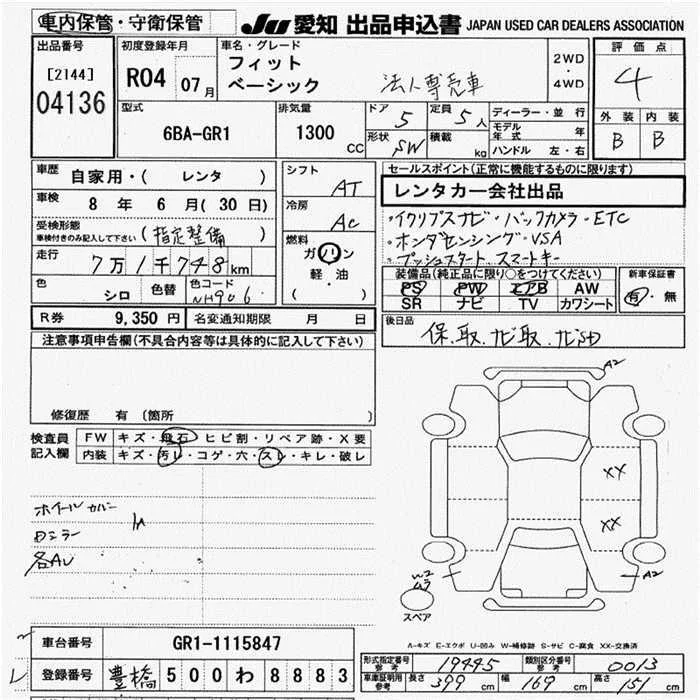 車内保管・守衛保管 JU 愛知 出品申込書 JAPAN USED CAR DEALERS ASSOCIATION
出品番号
[2144]
04136
初度登録年月
R04 07月
車名・グレード
フィット
ベーシック
法人専売車
2WD
・
4WD
型式
6BA-GR1
排気量
1300 CC
ドア 5
定員 5人
形状 SW
積載 kg
ディーラー・並行
モデル年式 年
ハンドル 左・右
評価点
4
外装 内装
B B
車歴 自家用・( レンタ )
車検 8 年 6 月( 30 日)
受検形態
車検付きのみ記入して下さい (指定整備)
走行 7万1千748km
色 シロ 色替 色コード NH906
シフト AT
冷房 AC
燃料
ガソリン
軽・油
( )
R券 9,350 円 名変通知期限 月 日
セールスポイント(正常に機能するものに限ります)
レンタカー会社出品
・イクリプスナビ・バックカメラ・ETC
・ホンダセンシング・VSA
・プッシュスタート、スマートキー
装備品(純正品に限り○をつけてください)
PS PW エアB AW
SR ナビ TV カワシート
新車保証書
有・無
後日品
保、取、ナビ取、ナビSD
注意事項申告欄(不具合内容等は具体的に記入して下さい)
修復歴 有 (箇所 )
検査員
記入欄
FW キズ・飛石 ヒビ割・リペア跡・X要
内装 キズ・汚レ・コゲ・穴・スレ・キレ・破レ
ホイールカバー
ロミラー
各AU
A2
XX
XX
W2
ムラ
A2
スペア
A-キズ E-エクボ U-凹み W-補修跡 S-サビ C-腐食 XX-交換済
車台番号 GR1-1115847
登録番号 豊橋 500 わ 8883
形式指定番号
参考 19445
類別区分番号
参考 0013
車庫証明用
参考 長さ 399 cm 幅 169 cm 高さ 151 cm